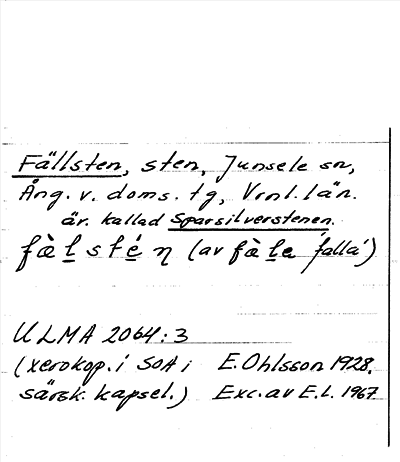 Fällsten, sten, Junsele sn,
Ång. v. doms. tg, Vrnl. län.
är. kallad Sparsilverstenen.
fàlstén (av fàla 'falla')
ULMA 2064:3
(xerokop. i SOA i E. Ohlsson 1928.
särsk. kapsel.) Exc. av E.L. 1967